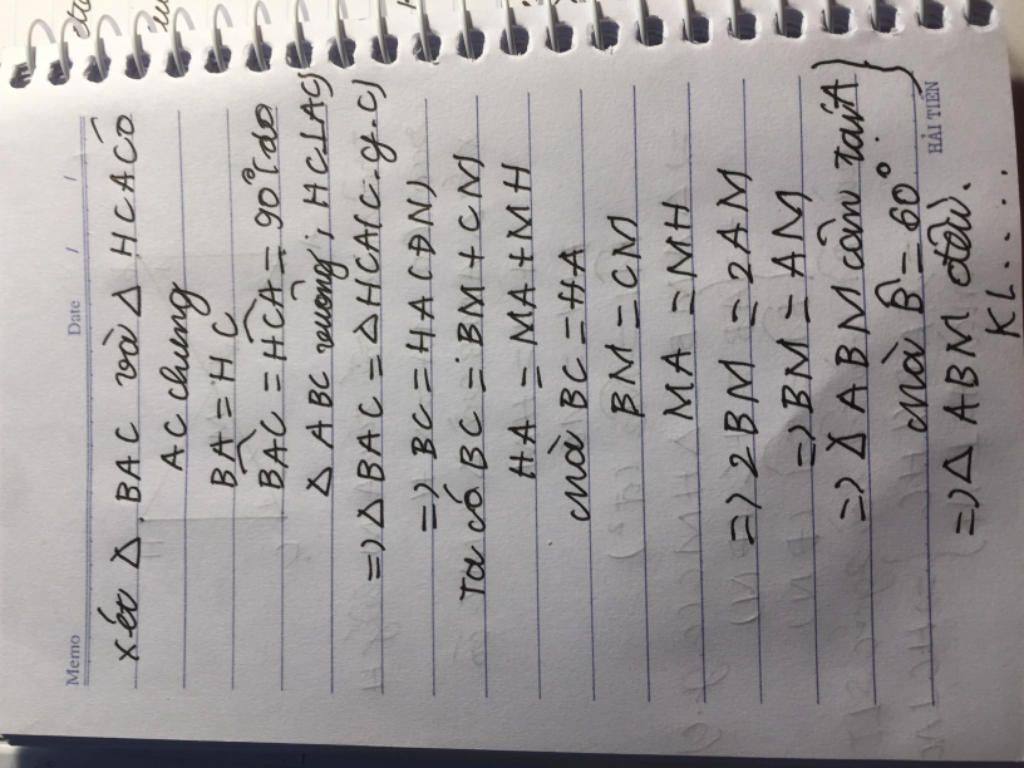 Memo
Date / /
Xét Δ BAC và Δ HCA CÓ
AC chung
BA = HC
BÂC = HĈA = 90° (do
Δ ABC vuông; HC⊥AC)
=> Δ BAC = Δ HCA (c.g.c)
=> BC = HA (ĐN)
Ta có BC = BM + CM
HA = MA + MH
mà BC = HA
BM = CM
MA = MH
=> 2BM = 2AM
=> BM = AM
=> Δ ABM cân tại A }
mà B̂ = 60°
=> Δ ABM đều.
KL....
HẢI TIẾN